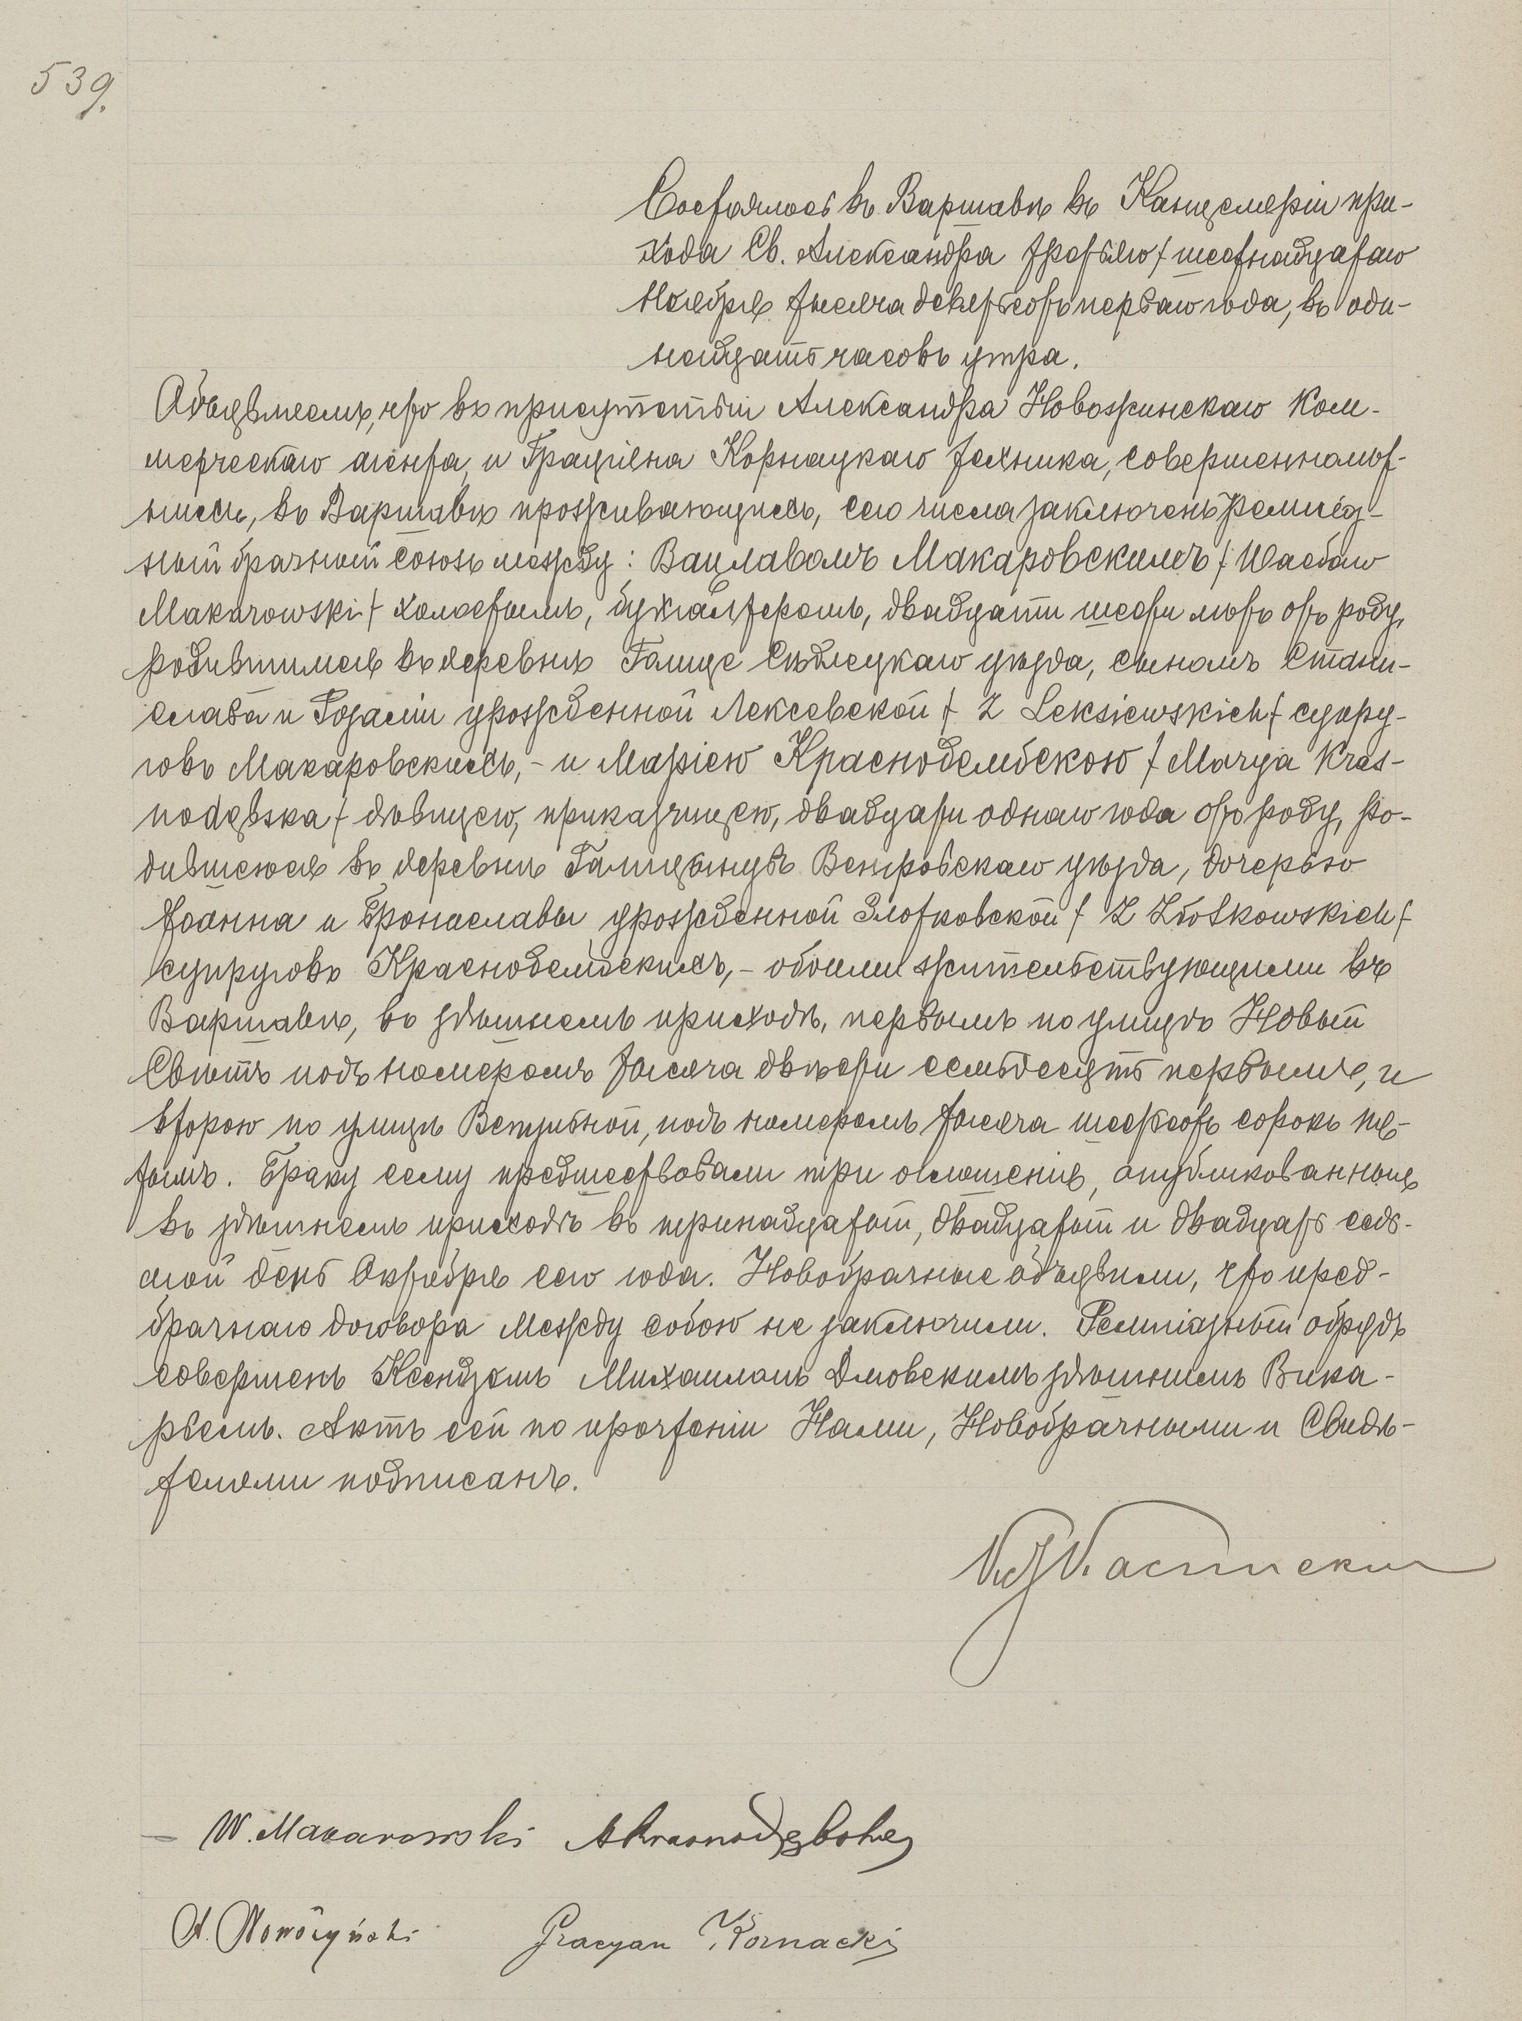 539.
Состоялось въ Варшавѣ въ Канцеляріи при-
хода Св. Александра третьяго / шестнадцатаго
Ноября тысяча девятьсотъ перваго года, въ оди-
надцать часовъ утра.
Объявляемъ, что въ присутствіи Александра Новожинскаго Ком-
мерческаго агента, и Граціяна Корнацкаго техника, совершеннолѣт-
нихъ, въ Варшавѣ проживающихъ, сего числа заключенъ религіоз-
ный брачный союзъ между: Вацлавомъ Макаровскимъ / Wacław
Makarowski / холостымъ, бухгалтеромъ, двадцати шести лѣтъ отъ роду,
родившимся въ деревнѣ Голице Сѣдлецкаго уѣзда, сыномъ Стани-
слава и Розаліи урожденной Лексевской / z Leksiewskich / супру-
говъ Макаровскихъ, - и Маріею Краснодембскою / Marya Kras-
nodębska / дѣвицею, приказчицею, двадцати одного года отъ роду, ро-
дившеюся въ деревнѣ Венгровскаго уѣзда, дочерью
Іоанна и Брониславы урожденной Злотковской / z Złotkowskich /
супруговъ Краснодембскихъ, - обоими жительствующими въ
Варшавѣ, въ здѣшнемъ приходѣ, первымъ по улицѣ Новый
Свѣтъ подъ номеромъ тысяча двѣсти семьдесятъ первымъ, и
второю по улицѣ подъ номеромъ тысяча шестьсотъ сорокъ пя-
тымъ. Браку сему предшествовали три оглашенія, опубликованныя
въ здѣшнемъ приходѣ въ тринадцатый, двадцатый и двадцать седь-
мой день Октября сего года. Новобрачные объявили, что пред-
брачнаго договора между собою не заключили. Религіозный обрядъ
совершенъ Ксендзомъ Михаиломъ Дмовскимъ здѣшнимъ Вика-
ріемъ. Актъ сей по прочтеніи Нами, Новобрачными и Свидѣ-
телями подписанъ.
W. Makarowski MKrasnodębska
A. Nowożyński Gracyan Kornacki